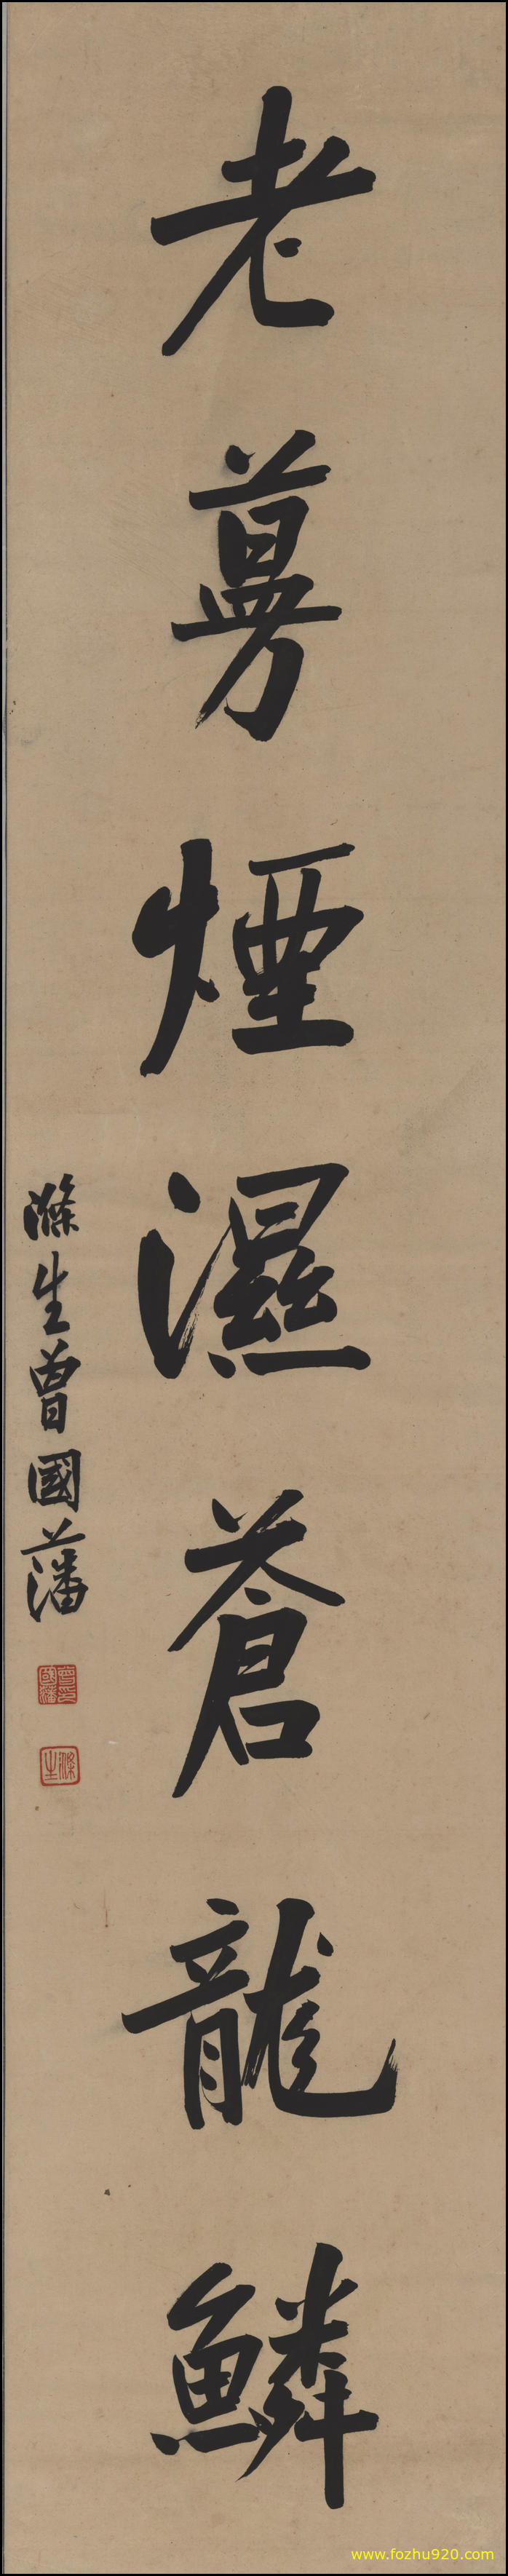 老蔓煙濕蒼龍鱗
滌生曾國藩
曾國藩印
滌生
www.fozhu920.com